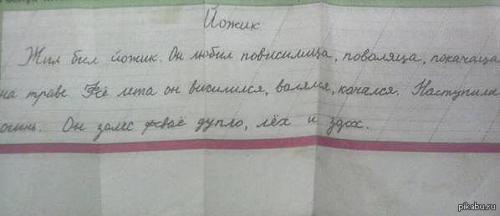 Йожик
Жил был йожик. Он любил повисилица, поволяца, покачаца
на траве Фсё лета он висилился, волялся, качался. Наступила
осинь. Он залес фсваё дупло, лёх и здох.
pikabu.ru